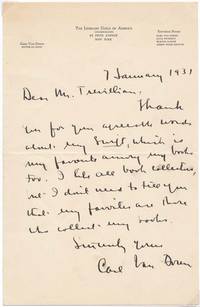 THE LITERARY GUILD OF AMERICA
NEW YORK
CARL VAN DOREN
7 January 1931
Dear Mr. Trevillian,
Thank
you for your agreeable words
about my Swift, which is
my favorite among my books
too. I like all book collectors,
but I don't need to tell you
that my favorites are those
who collect my books.
Sincerely yours
Carl Van Doren